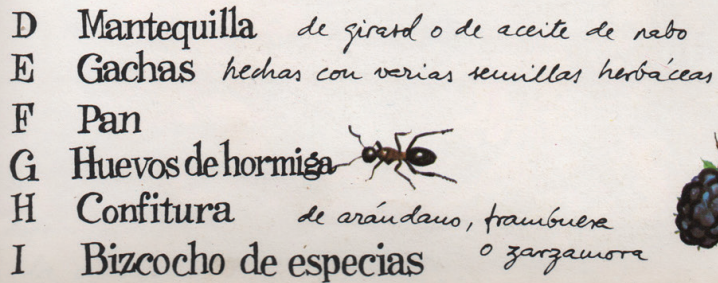 D Mantequilla de girasol o de aceite de nabo
E Gachas hechas con varias semillas herbáceas
F Pan
G Huevos de hormiga
H Confitura de arándano, frambuesa
I Bizcocho de especias o zarzamora